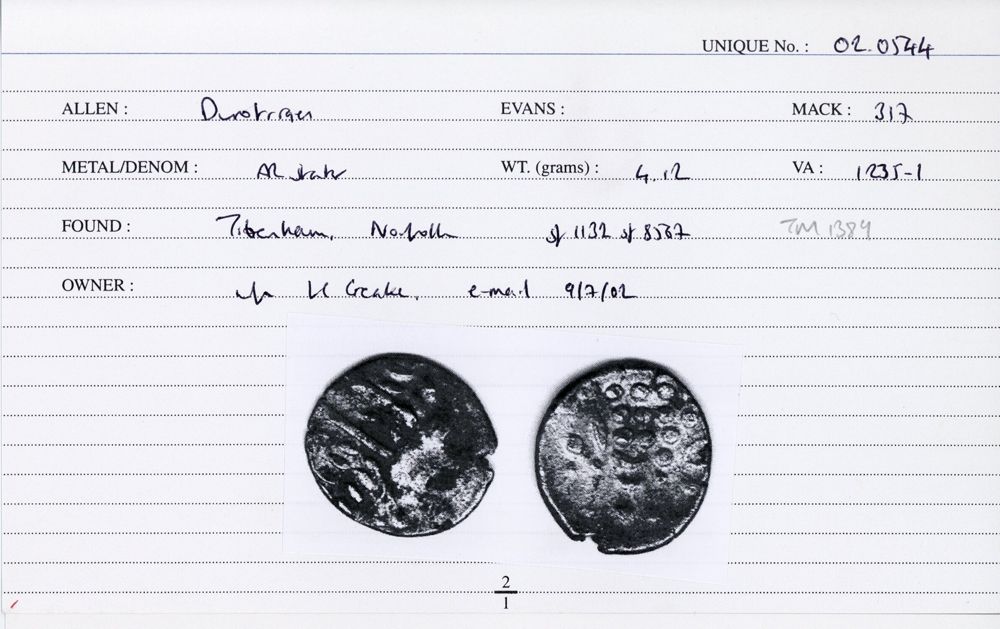 UNIQUE No. : 02.0544
ALLEN : Durotriges EVANS : MACK : 317
METAL/DENOM : AR stater WT. (grams) : 4.12 VA : 1235-1
FOUND : Tibenham, Norfolk sf 1132 sf 8567 TM 1389
OWNER : H Geake, e-mail 9/7/02
2
1